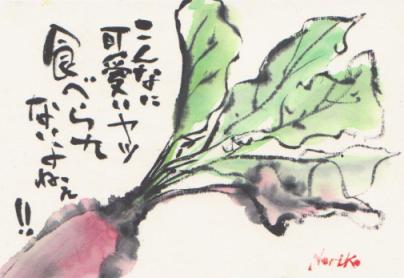 こんなに
可愛いヤツ
食べられ
ないよねぇ
!!
Noriko